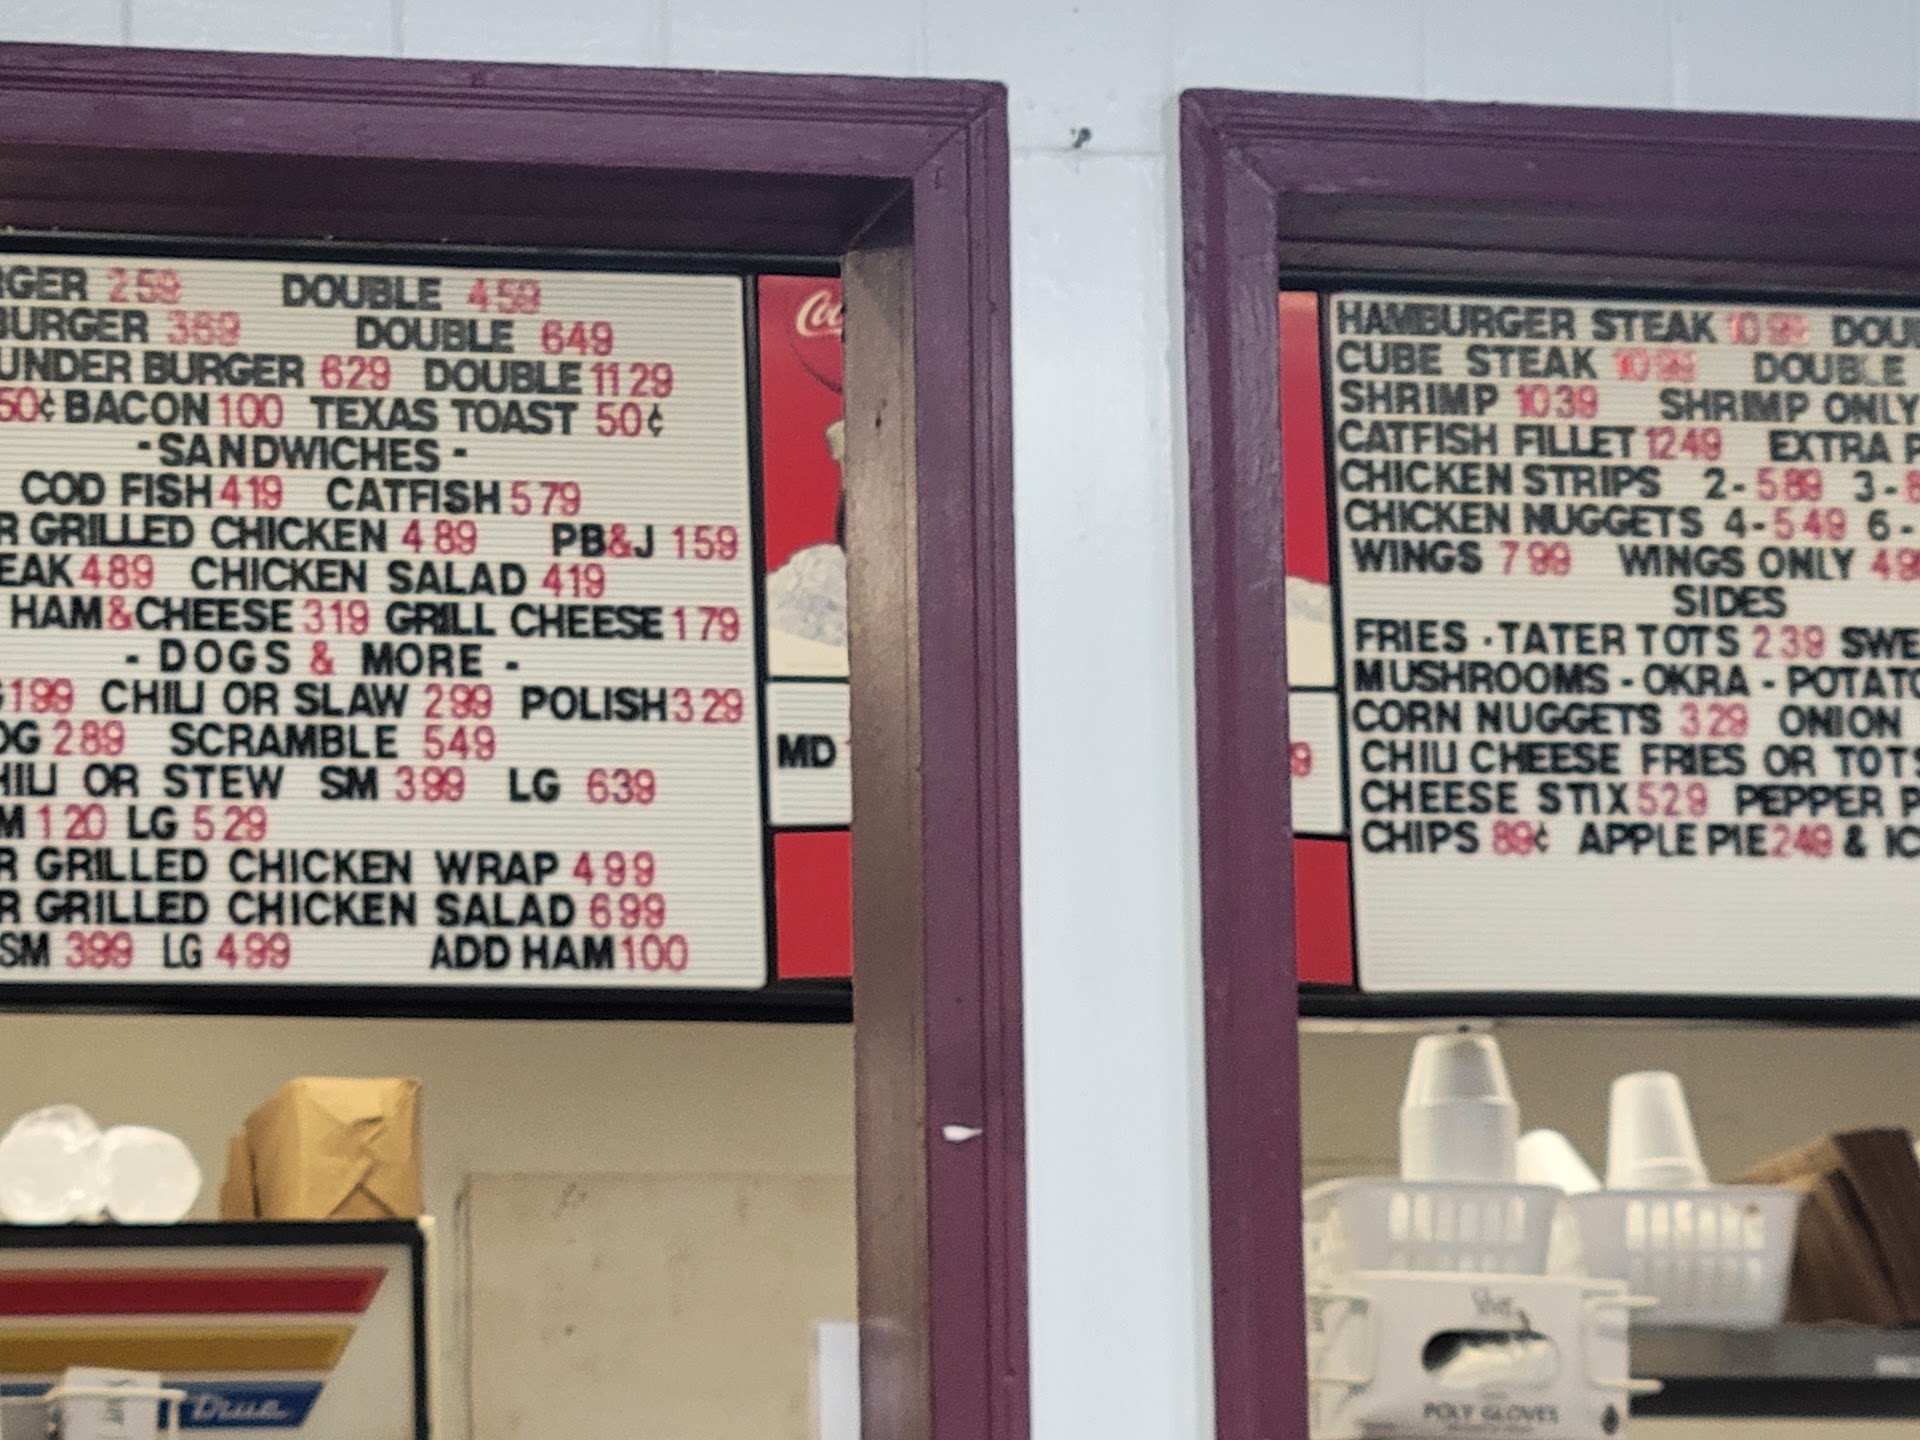 RGER 259 DOUBLE 459
BURGER 369 DOUBLE 649
UNDER BURGER 629 DOUBLE 1129
50¢ BACON 100 TEXAS TOAST 50¢
-SANDWICHES-
COD FISH 419 CATFISH 579
R GRILLED CHICKEN 489 PB&J 159
EAK 489 CHICKEN SALAD 419
HAM&CHEESE 319 GRILL CHEESE 179
- DOGS & MORE -
199 CHILI OR SLAW 299 POLISH 329
OG 289 SCRAMBLE 549
HILI OR STEW SM 399 LG 639
M 120 LG 529
R GRILLED CHICKEN WRAP 499
R GRILLED CHICKEN SALAD 699
SM 399 LG 499 ADD HAM 100
Coc
MD
9
HAMBURGER STEAK 1099 DOU
CUBE STEAK 1099 DOUBLE
SHRIMP 1039 SHRIMP ONLY
CATFISH FILLET 1249 EXTRA P
CHICKEN STRIPS 2-589 3-
CHICKEN NUGGETS 4-549 6-
WINGS 799 WINGS ONLY 49
SIDES
FRIES · TATER TOTS 239 SWE
MUSHROOMS - OKRA - POTATO
CORN NUGGETS 329 ONION
CHILI CHEESE FRIES OR TOTS
CHEESE STIX 529 PEPPER P
CHIPS 89¢ APPLE PIE 249 & IC
POLY GLOVES